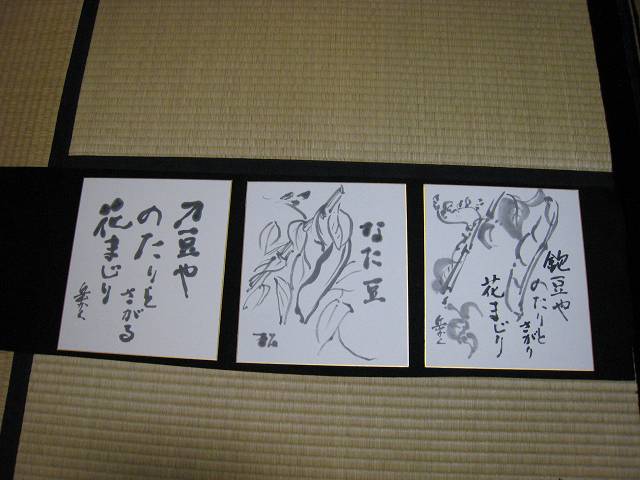 鉈豆や
のたりと
さがり
花まじり
なた豆
刀豆や
のたりと
さがる
花まじり